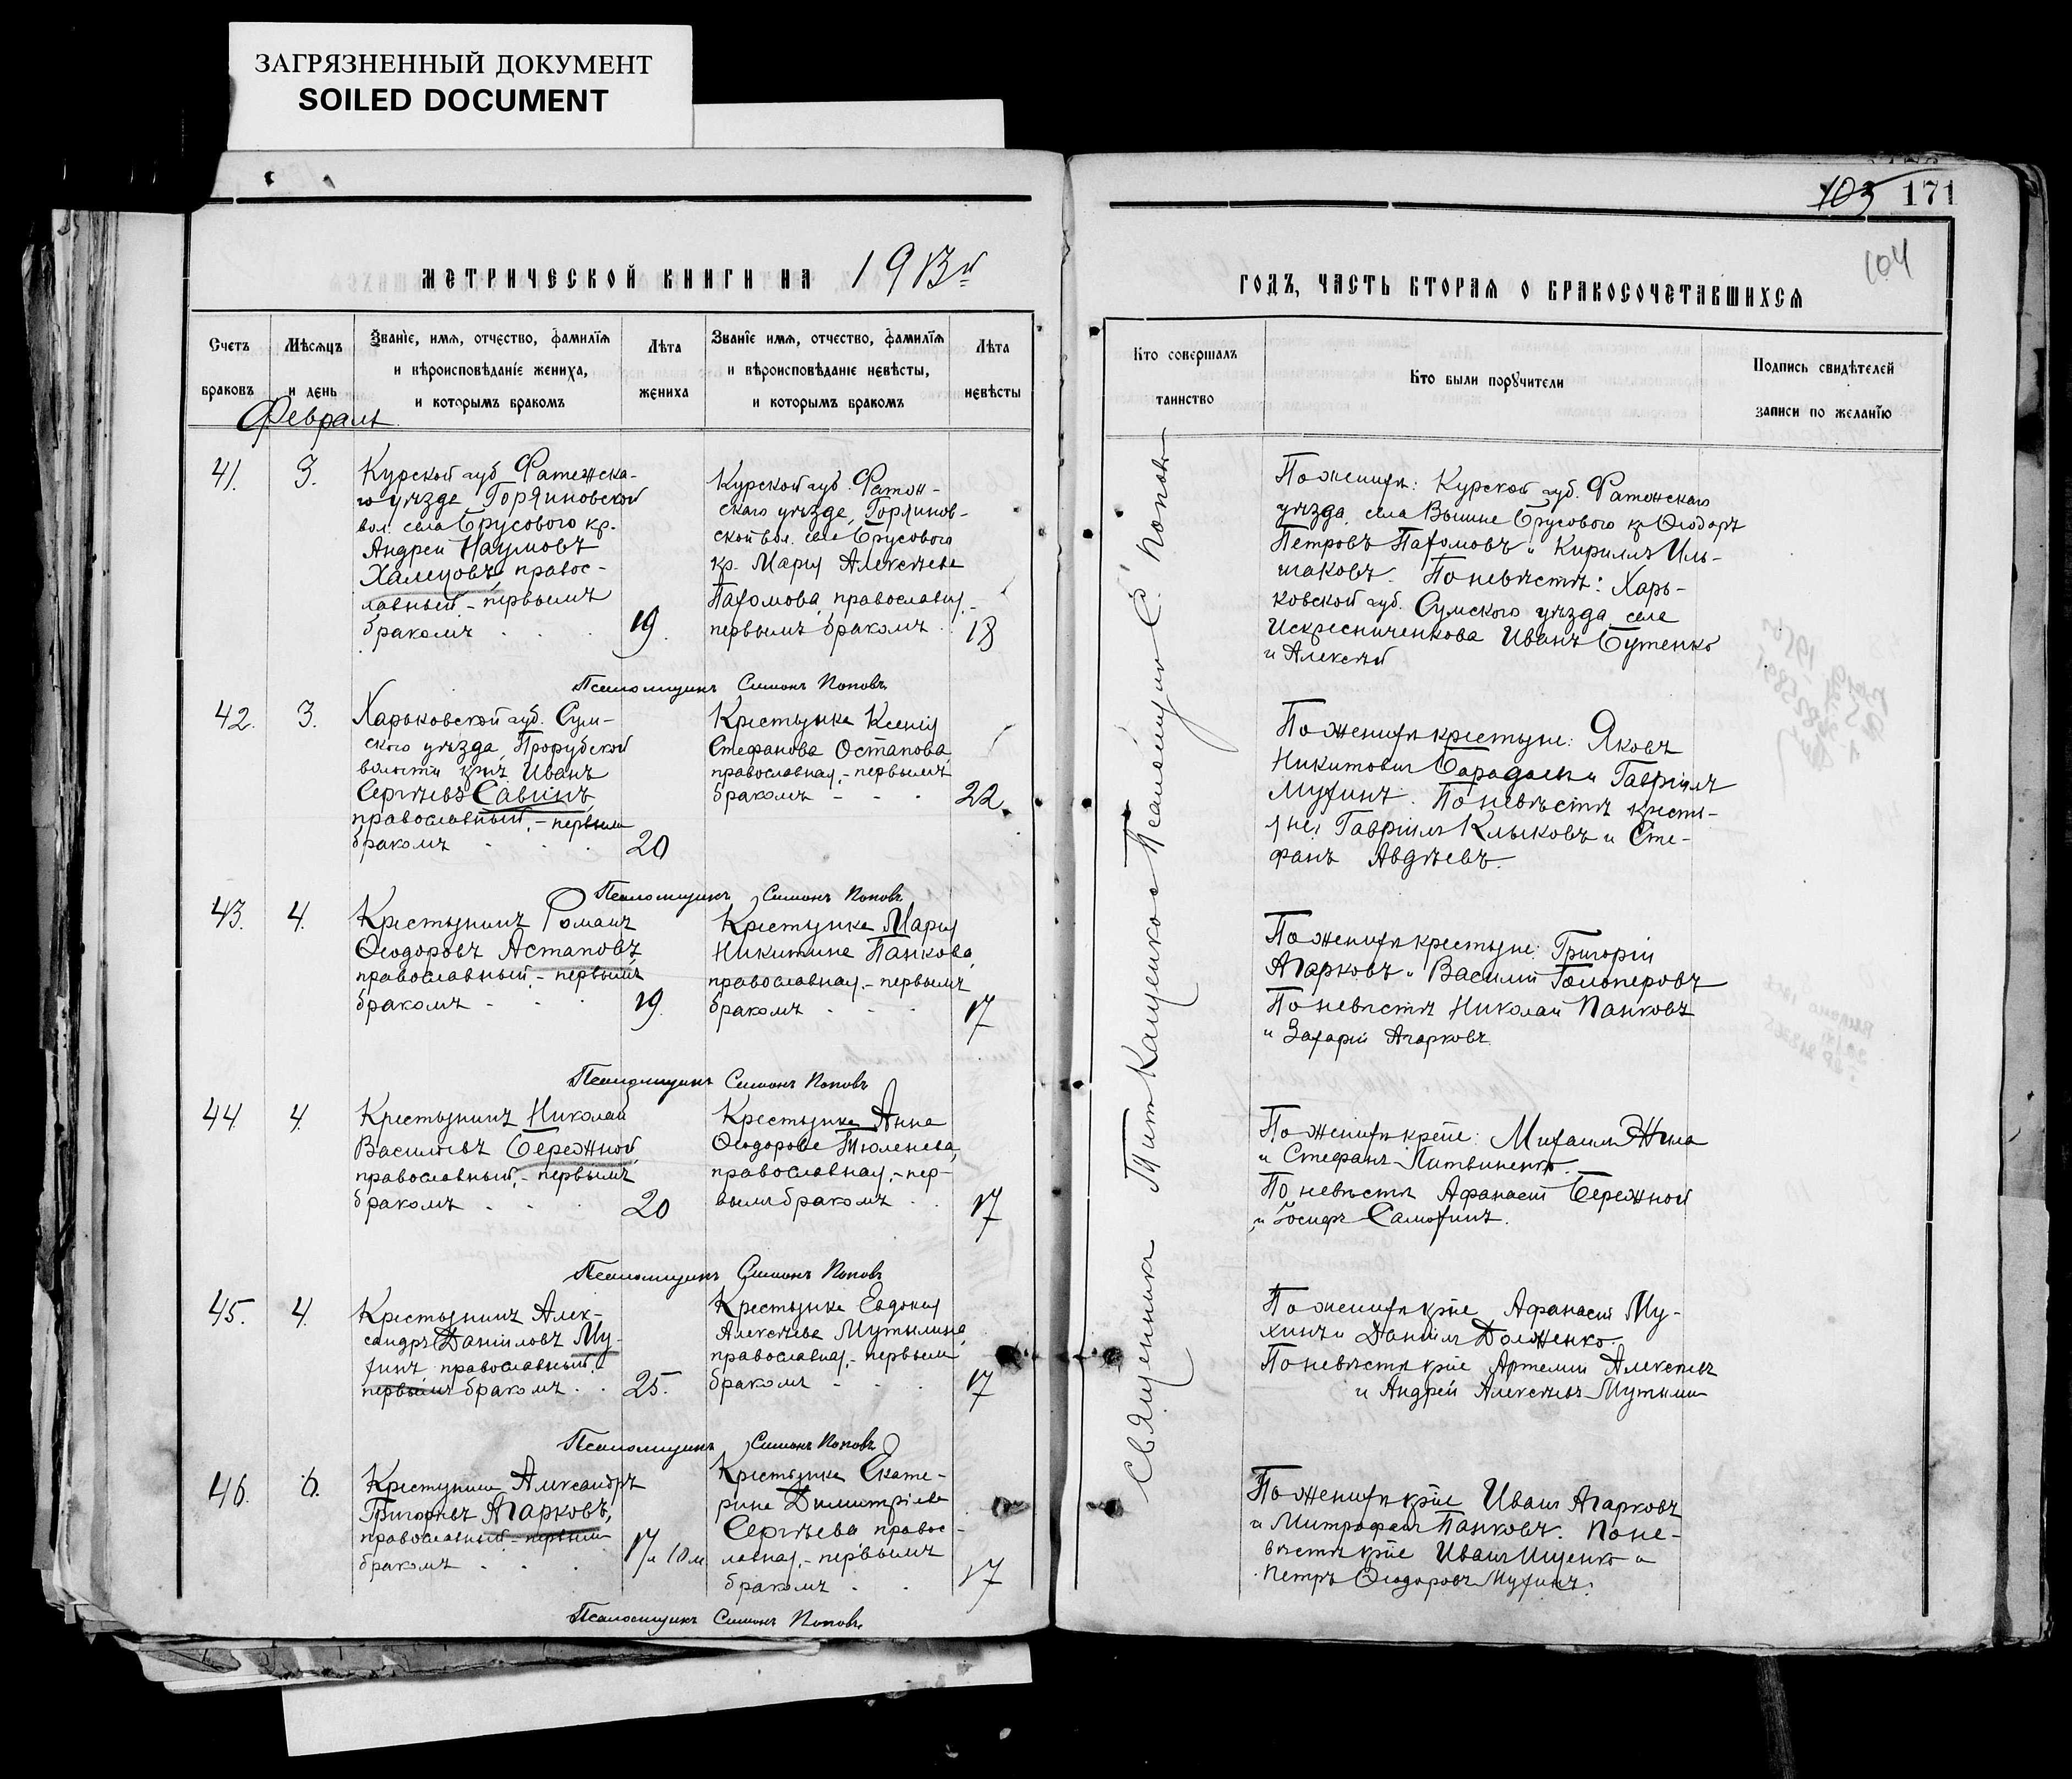 ЗАГРЯЗНЕННЫЙ ДОКУМЕНТ
SOILED DOCUMENT
103 171
104
МЕТРИЧЕСКОЙ КНИГИ НА 1913й
ГОДЪ, ЧАСТЬ ВТОРАЯ О БРАКОСОЧЕТАВШИХСЯ
Счетъ браковъ
Мѣсяцъ и день
Званіе, имя, отчество, фамилія
и вѣроисповѣданіе жениха,
и которымъ бракомъ
Лѣта жениха
Званіе имя, отчество, фамилія
и вѣроисповѣданіе невѣсты,
и которымъ бракомъ
Лѣта невѣсты
Кто совершалъ
таинство
Кто были поручители
Подпись свидѣтелей
записи по желанію
Февраль
41.
3.
Курской губ Фатежска-
го уѣзда Горяиновской
вол. села Брусового кр.
Андрей Наумовъ
Халецовъ, правос-
лавный - первымъ
бракомъ
19.
Курской губ. Фатеж-
скаго уѣзда, Горяинов-
ской вол. села Брусового
кр. Марія Алексѣева
Пахомова, православн.-
первымъ бракомъ
18
Псаломщикъ Симонъ Поповъ
42.
3.
Харьковской губ. Сум-
ского уѣзда, Прорубской
волости крнъ Иванъ
Сергѣевъ Савинъ,
православный, - первымъ
бракомъ
20
Крестьянка Ксенія
Стефанова Остапова,
православная, - первымъ
бракомъ
22.
Псаломщикъ Симонъ Поповъ
43.
4.
Крестьянинъ Романъ
Ѳеодоровъ Астаповъ,
православный, - первымъ
бракомъ
19.
Крестьянка Марія
Никитина Панкова,
православная, - первымъ
бракомъ
17
Псаломщикъ Симонъ Поповъ
44.
4.
Крестьянинъ Николай
Васильевъ Бережной,
православный, - первымъ
бракомъ
20
Крестьянка Анна
Ѳеодорова Тюленева,
православная, - пер-
вымъ бракомъ
17
Псаломщикъ Симонъ Поповъ
45.
4.
Крестьянинъ Алек-
сандръ Даниловъ Му-
хинъ, православный,
первымъ бракомъ
25.
Крестьянка Евдокія
Алексѣева Мутылина,
православная, - первымъ
бракомъ
17
Псаломщикъ Симонъ Поповъ
46.
6.
Крестьянинъ Александръ
Григорьевъ Агарковъ,
православный - первымъ
бракомъ
17 и 10 м
Крестьянка Екате-
рина Димитріева
Сергѣева правос-
лавная, - первымъ
бракомъ
17
Псаломщикъ Симонъ Поповъ
Священникъ Титъ Кащенко съ Псаломщик. С. Поповъ
По женихѣ: Курской губ. Фатежскаго
уѣзда, села Вышне Брусового кр Ѳеодоръ
Петровъ Пахомовъ и Кириллъ Иль-
шаковъ. По невѣстѣ: Харь-
ковской губ. Сумского уѣзда, села
Иванъ Бутенко
и Алексѣй
По женихѣ крестьяне: Яковъ
Никитовъ и Гавріилъ
Мухинъ. По невѣстѣ кресть-
яне, Гавріилъ Клыковъ и Сте-
фанъ Авдѣевъ.
По женихѣ крестьяне: Григорій
Агарковъ и Василій
По невѣстѣ Николай Панковъ
и Захарій Агарковъ.
По женихѣ крне: Михаилъ Жила
и Стефанъ Литвиненко.
По невѣстѣ Афанасій Бережной
и Іосифъ Самохинъ.
По женихѣ крне Афанасій Му-
хинъ и Даніилъ Долженко.
По невѣстѣ крне Артемій Алексѣевъ
и Андрей Алексѣевъ Мутылин
По женихѣ крне Иванъ Агарковъ
и Митрофанъ Панковъ. По не-
вѣстѣ крне Иванъ Ищенко и
Петръ Ѳеодоровъ Мухинъ.